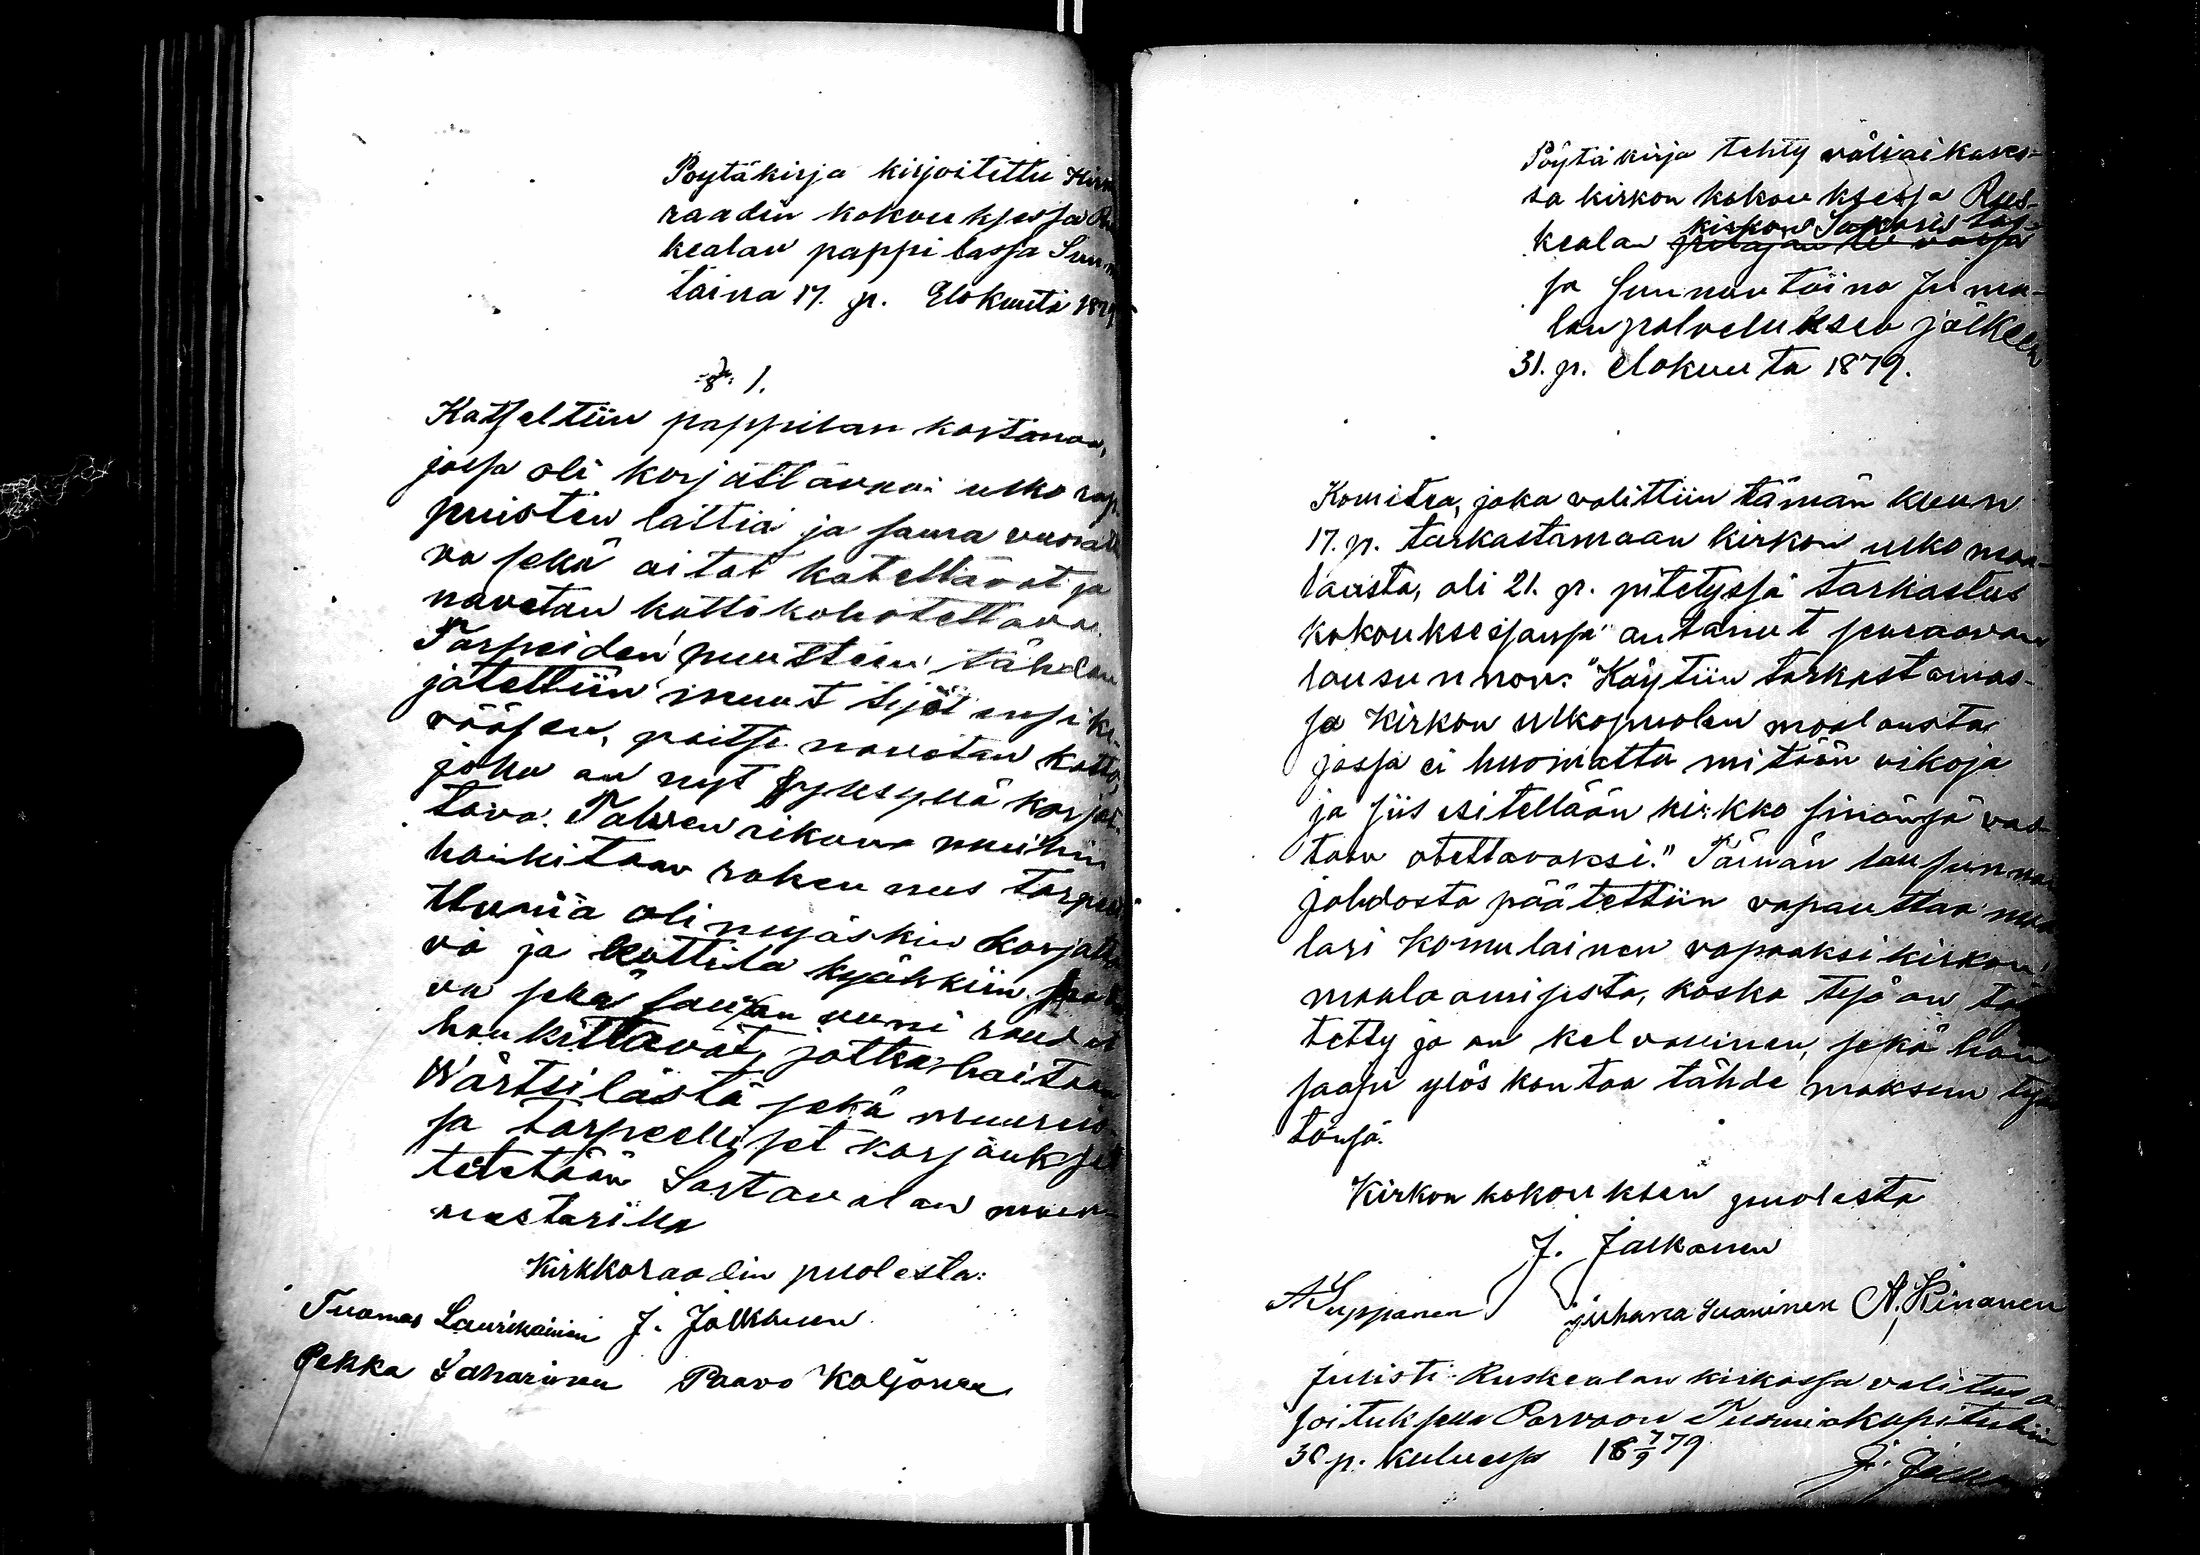 Pöytäkirja kirjoitettu
raadin kokouksessa
kealan pappilassa Sunn
taina 17. p. Elokuuta 1879
§. 1.
Katseltiin pappilan kartanoa,
jossa oli korjattavaa: ulko rap
puisten lattia ja sauna
va sekä aitat katettavat ja
navetan katto kohotettava.
Tarpeiden puutteen tähden
jätettiin muut työt ensi ke-
vääsen, paitse navetan katto,
joka on nyt syksyllä korjat-
tava. Talven aikana muihin
hankitaan rakennus tarpeet
Uunia oli myöskin korjatta
vä ja kyökkiin
va sekä uuni
hankittavat, jotka haitaan
Wärtsilästä sekä
ja tarpeelliset korjaukset
tetetään Sortavalan muur-
mestarilla
Kirkkoraadin puolesta:
Tuomas Laurikainen J. Jalkanen
Pekka Saharinen Paavo Koljonen
Pöytäkirja tehty väliaikases-
sa kirkon kokouksessa Rus-
kealan kirkon Sakaris tos-
sa Sunnuntaina Juma-
lanpalveluksen jälkeen
31. p. elokuuta 1879.
Komitea, joka valittiin tämän kuun
17. p. tarkastamaan kirkon ulko maa-
lausta, oli 21. p. pitetyssä tarkastus
kokouksessansa antanut seuraavan
lausunnon: "Käytiin tarkastamas-
sa Kirkon ulkopuolen maalausta
jossa ei huomattu mitään vikoja
ja siis esitellään kirkko sinänsä vas-
taan otettavaksi." Tämän lausunnon
johdosta päätettiin vapauttaa maa
lari Komulainen vapaaksi kirkon
maalaamisesta, koska työ on täy
tetty ja on kelvollinen, sekä hän
saapi ylös kantaa tähde maksun työs
tänsä.
Kirkon kokouksen puolesta
J. Jalkanen
A Suppanen juhana Suaninen A. Kinanen
Julisti Ruskealan kirkossa valitus o-
soituksella Porvoon Tuomiokapituliin
30 p. kuluessa 18 7/9 79
J. Jalka